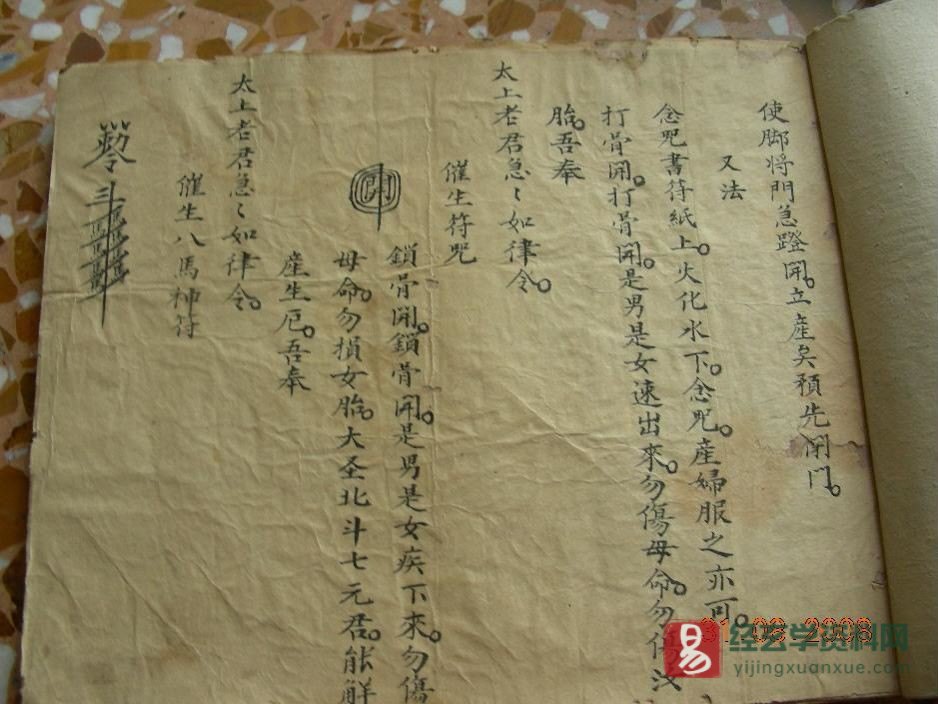 使脚将門急蹬開。立產矣預先閉門。
又法
念咒書符紙上。火化水下。念咒。産婦服之亦可。
打骨開。打骨開。是男是女速出來。勿傷母命。勿傷
胎。吾奉
太上老君急〻如律令。
催生符咒
鎖骨開。鎖骨開。是男是女疾下來。勿傷
母命。勿損女胎。大圣北斗七元君。能解
産生厄。吾奉
太上老君急〻如律令。
催生八馬神符
易
经玄学资料网
yijingxuanxue.com